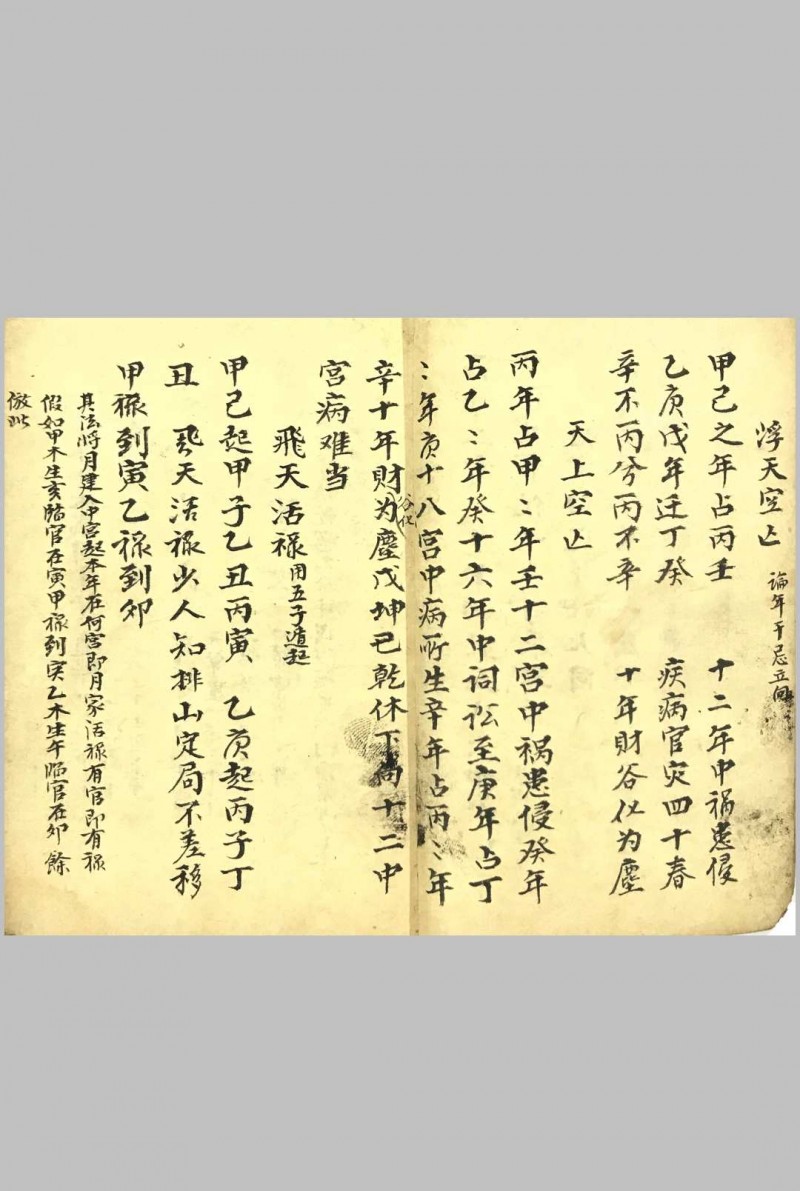 浮天空亡 論年干忌立向
甲己之年占丙壬 十二年中禍患侵
乙庚戊年迁丁癸 疾病官灾四十春
辛不丙兮丙不辛 十年財谷化为塵
天上空亡
丙年占甲〻年壬十二宫中禍患侵癸年
占乙〻年癸十六年中词訟至庚年占丁
〻年庚十八宫中病所生辛年占丙〻年
辛十年財谷化为塵戊坤己乾休下向十二中
宫病难当
飛天活禄 用五子遁起
甲己起甲子乙丑丙寅 乙庚起丙子丁
丑 飛天活祿少人知排山定局不差移
甲祿到寅乙祿到卯
其法將月建入中宮起本年在何宮即月家活祿有官即有祿
假如甲木生亥临官在寅甲祿到寅乙木生午临官在卯 餘
倣此